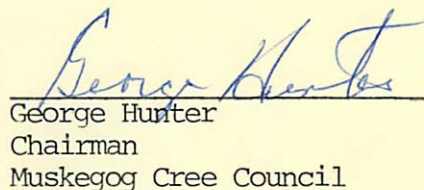 George Hunter
George Hunter
Chairman
Muskegog Cree Council